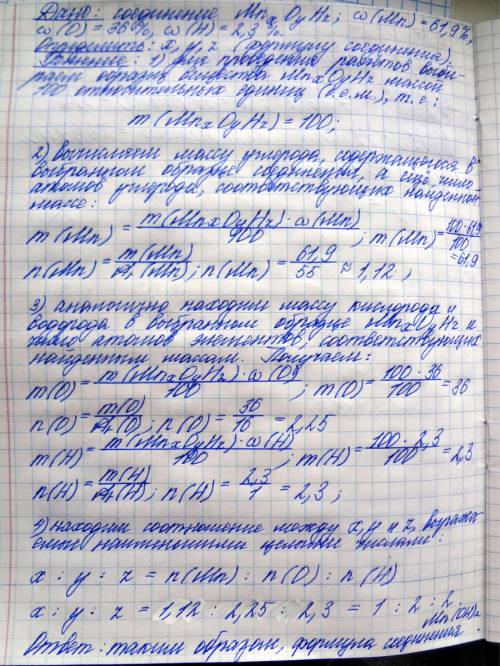 Дано: соединение MnxOyHz; ω(Mn) = 61,9%,
ω(O) = 36%, ω(H) = 2,3%.
Определить: x, y, z (формулу соединения).
Решение: 1) Для проведения расчётов выби-
раем образец вещества MnxOyHz массой
100 относительных единиц (о.е.м.), т.е.:
m(MnxOyHz) = 100;
2) вычисляем массу углерода, содержащегося в
выбранном образце соединения, а ещё число
атомов углерода, соответствующих найденной
массе:
m(Mn) = m(MnxOyHz) · ω(Mn) / 100 ; m(Mn) = 100·61,9 / 100 = 61,9
n(Mn) = m(Mn) / Ar(Mn) ; n(Mn) = 61,9 / 55 ≈ 1,12 ;
3) аналогично находим массу кислорода и
водорода в выбранном образце MnxOyHz и
число атомов элементов, соответствующих
найденным массам. Получаем:
m(O) = m(MnxOyHz) · ω(O) / 100 ; m(O) = 100 · 36 / 100 = 36
n(O) = m(O) / Ar(O) ; n(O) = 36 / 16 = 2,25
m(H) = m(MnxOyHz) · ω(H) / 100 ; m(H) = 100 · 2,3 / 100 = 2,3
n(H) = m(H) / Ar(H) ; n(H) = 2,3 / 1 = 2,3 ;
4) находим соотношение между x, y и z, выража-
емое наименьшими целыми числами:
x : y : z = n(Mn) : n(O) : n(H)
x : y : z = 1,12 : 2,25 : 2,3 = 1 : 2 : 2.
Ответ: таким образом, формула соединения: Mn(OH)2